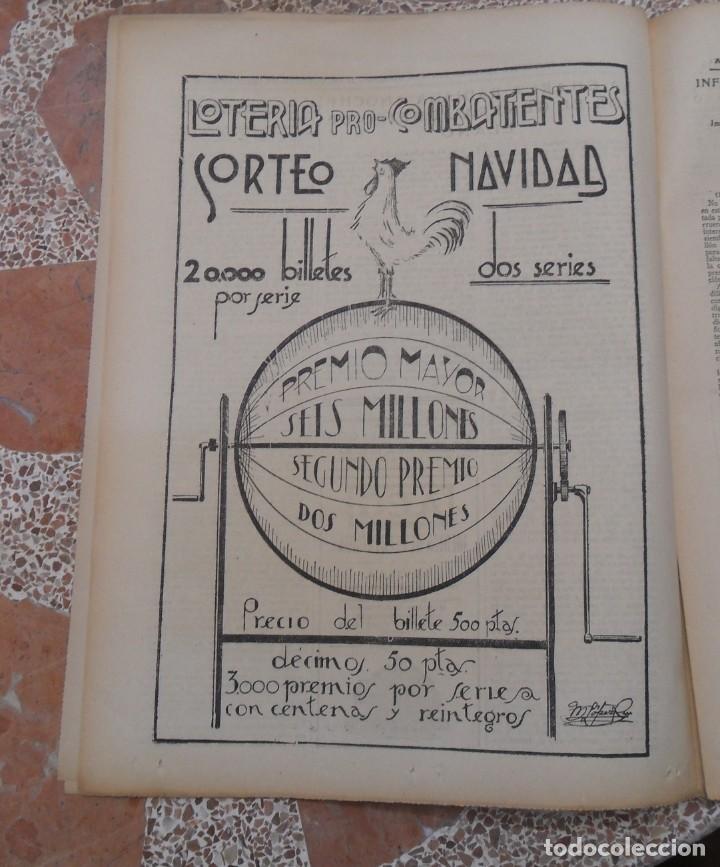 LOTERIA PRO-COMBATIENTES
SORTEO NAVIDAD
20.000 billetes
por serie
dos series
PREMIO MAYOR
SEIS MILLONES
SEGUNDO PREMIO
DOS MILLONES
Precio del billete 500 ptas.
décimos. 50 ptas.
3.000 premios por seriesa
con centenas y reintegros
INF
todocoleccion